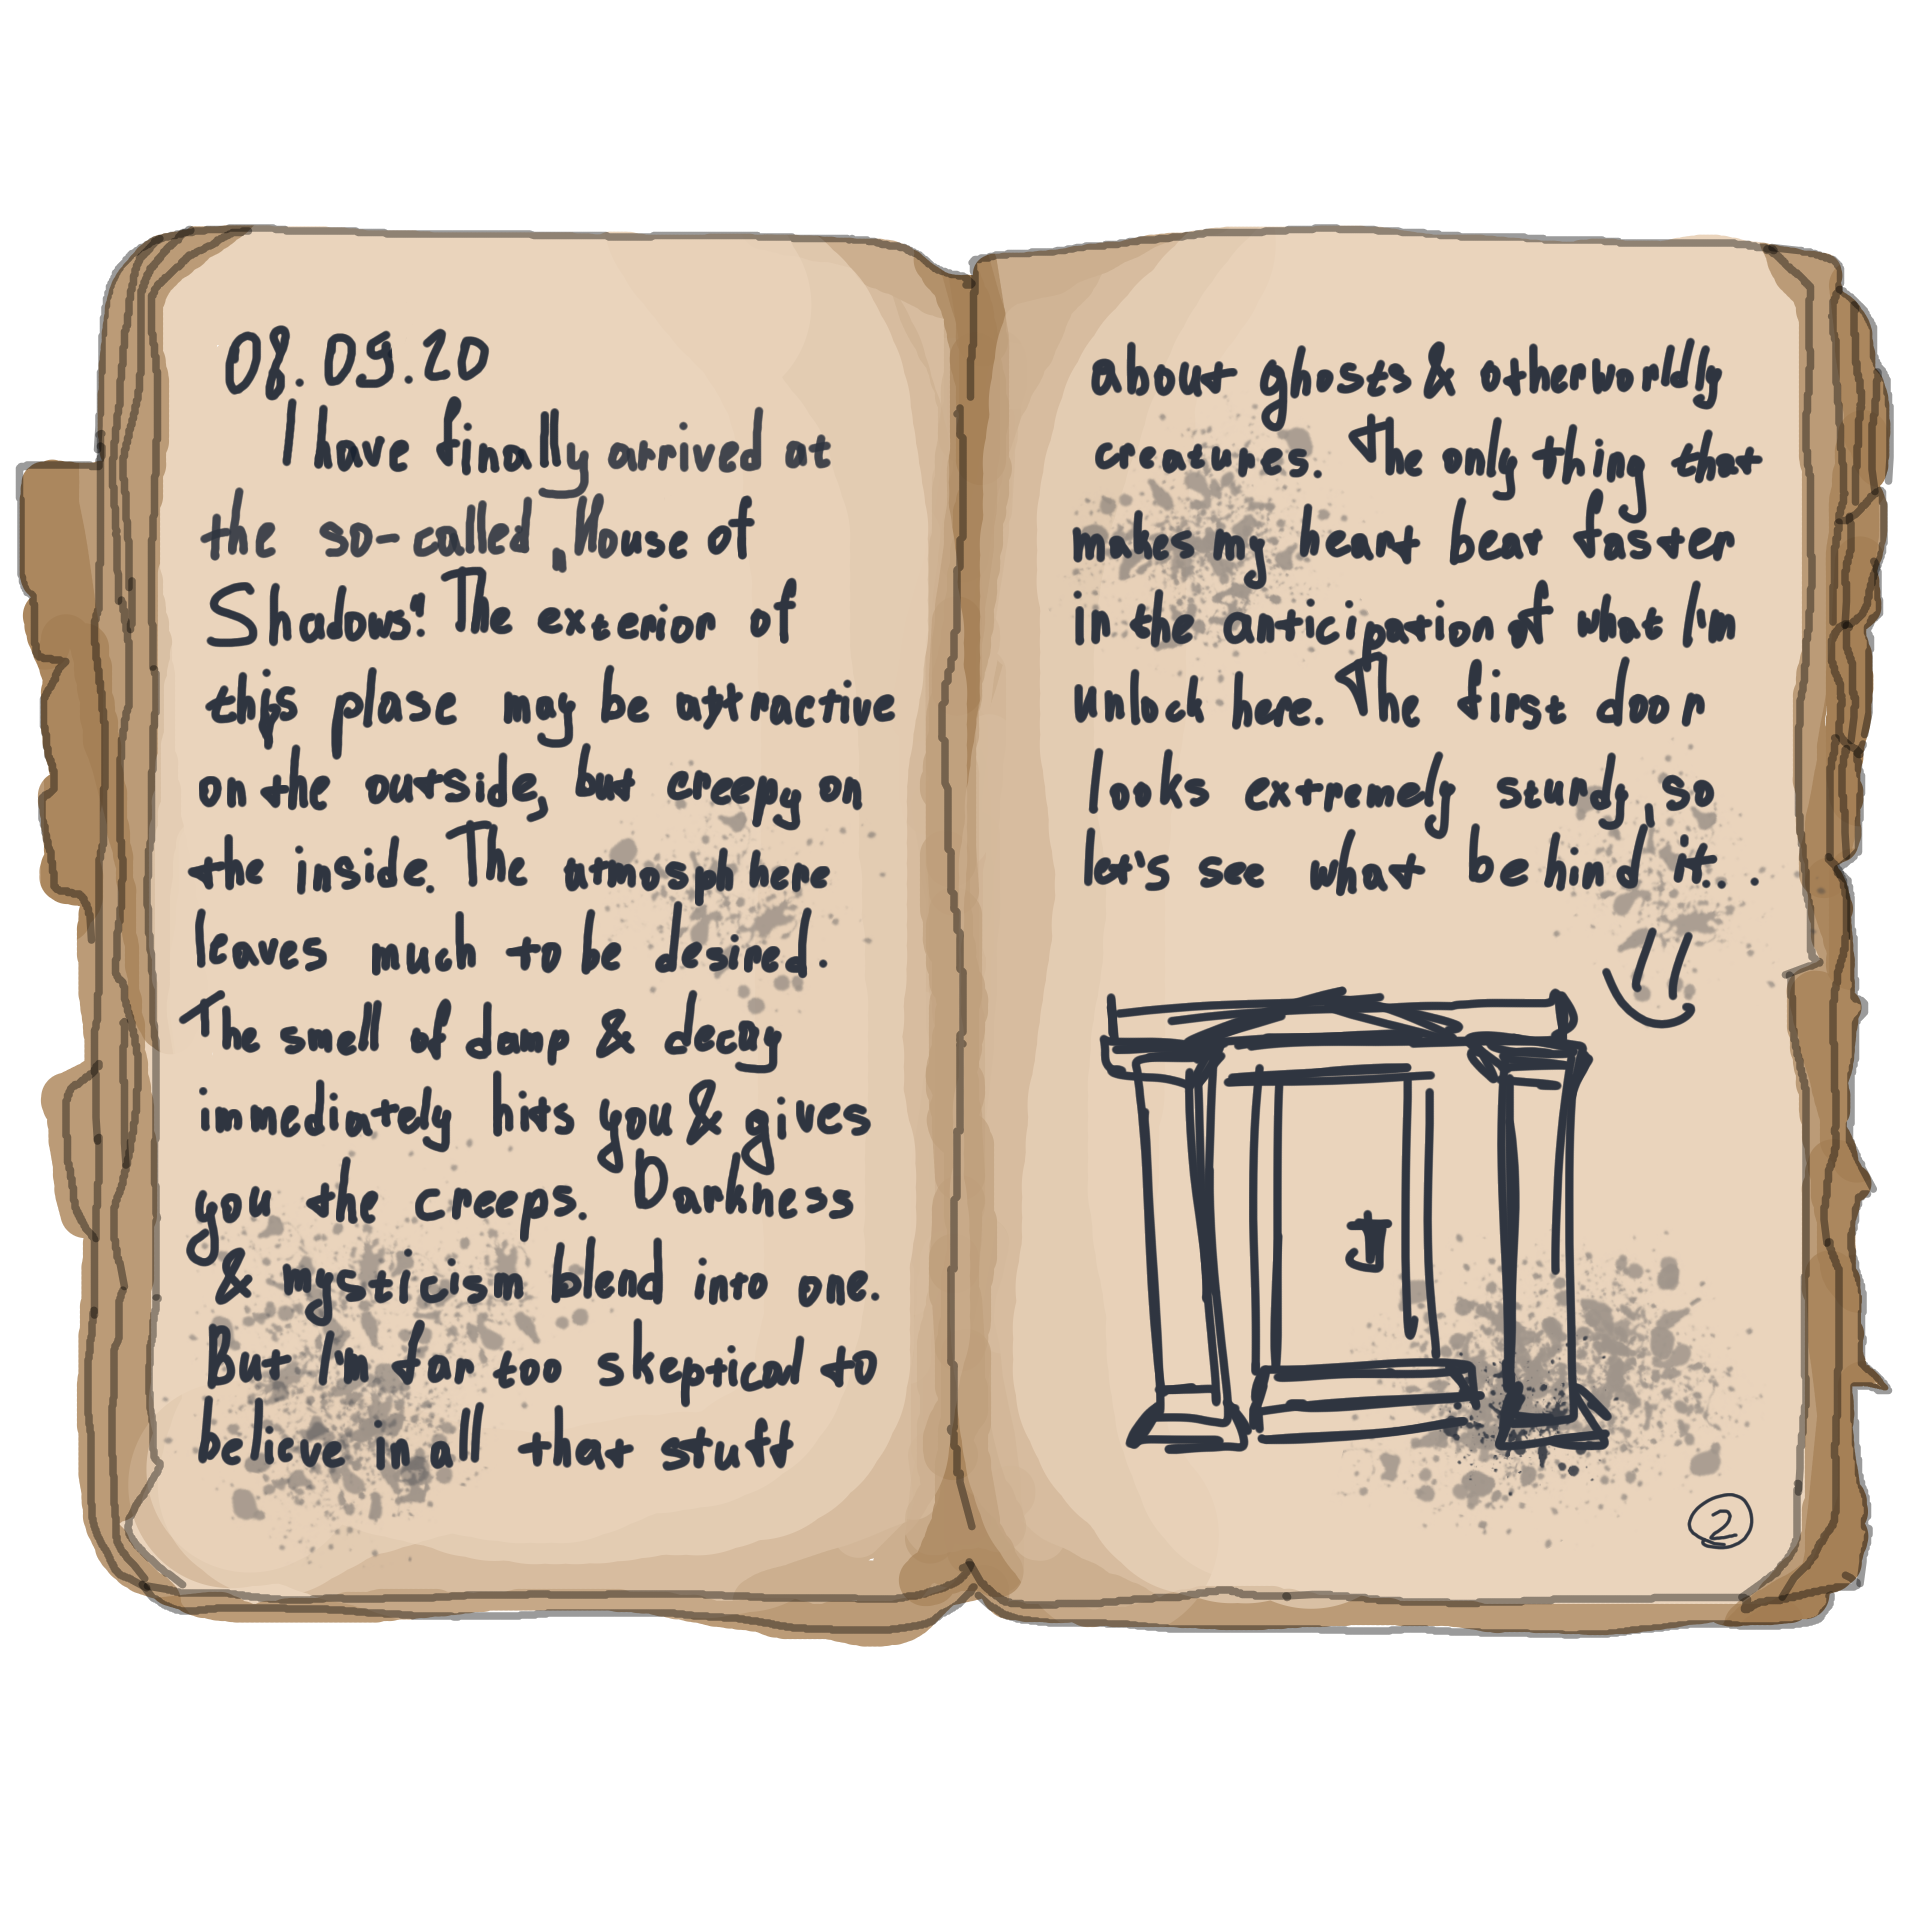 08.09.20
I have finally arrived at
the so-called „House of
Shadows". The exterior of
this plase may be attractive
on the outside, but creepy on
the inside. The atmosphere
leaves much to be desired.
The smell of damp & decay
immediately hits you & gives
you the creeps. Darkness
& mysticism blend into one.
But I'm far too skeptical to
believe in all that stuff
about ghosts & otherworldly
creatures. The only thing that
makes my heart beat faster
in the anticipation of what I'm
unlock here. The first door
looks extremely sturdy, so
let's see what behind it...
2